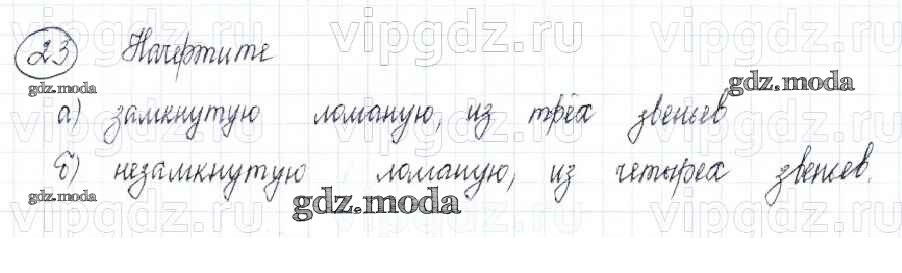 vipgdz.ru vipgdz.ru vipgdz.ru
23 Начертите
gdz.moda gdz.moda
а) замкнутую ломаную, из трёх звеньев
vipgdz.ru vipgdz.ru vipgdz.ru
б) незамкнутую ломаную, из четырех звеньев.
gdz.moda gdz.moda
vipgdz.ru vipgdz.ru vipgdz.ru